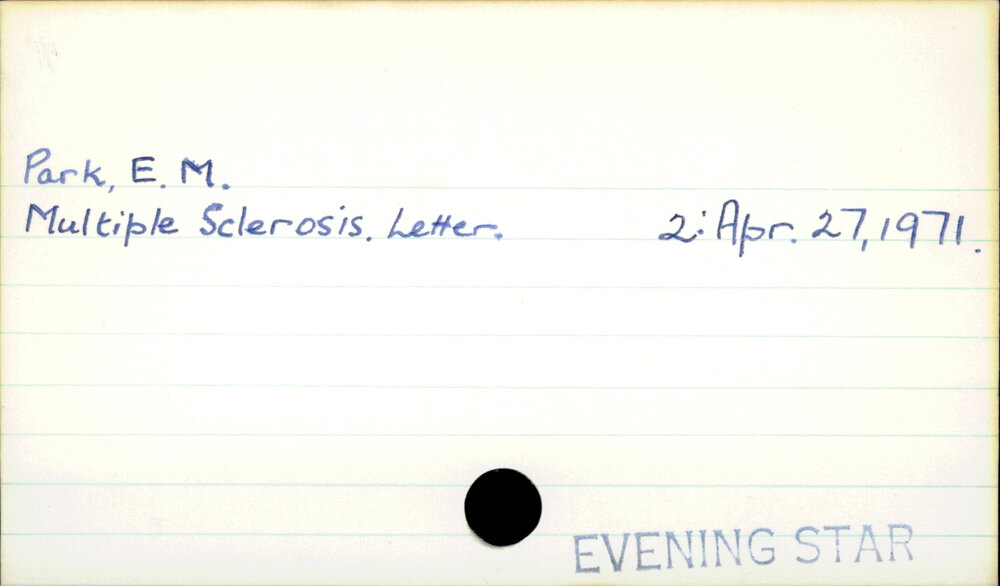 Park, E. M.
Multiple Sclerosis. Letter. 2: Apr. 27, 1971.
EVENING STAR